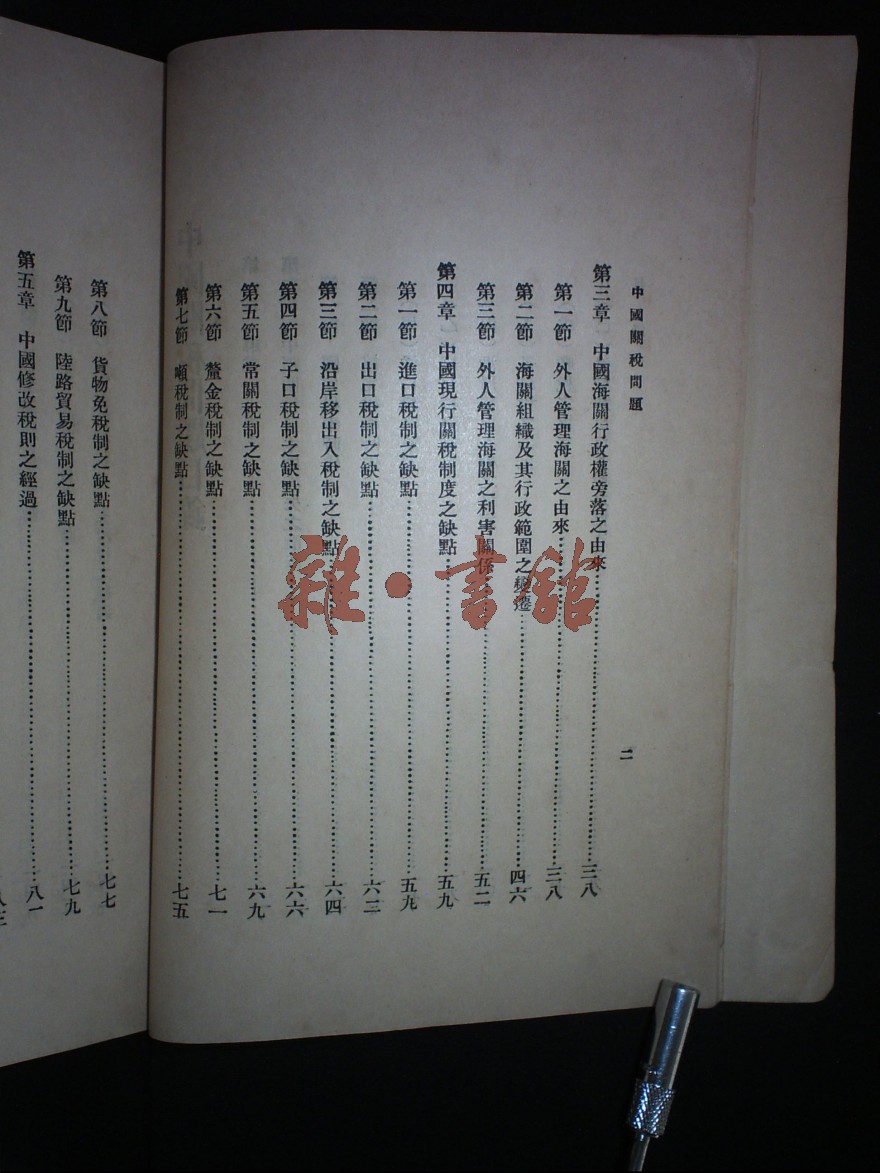 中國關稅問題
二
第三章 中國海關行政權旁落之由來…………三八
第一節 外人管理海關之由來…………三八
第二節 海關組織及其行政範圍之變遷…………四六
第三節 外人管理海關之利害關係…………五二
第四章 中國現行關稅制度之缺點…………五九
第一節 進口稅制之缺點…………五九
第二節 出口稅制之缺點…………六二
第三節 沿岸移出入稅制之缺點…………六四
第四節 子口稅制之缺點…………六六
第五節 常關稅制之缺點…………六九
第六節 釐金稅制之缺點…………七一
第七節 噸稅制之缺點…………七五
第八節 貨物免稅制之缺點…………七七
第九節 陸路貿易稅制之缺點…………七九
第五章 中國修改稅則之經過…………八一
雜·書館